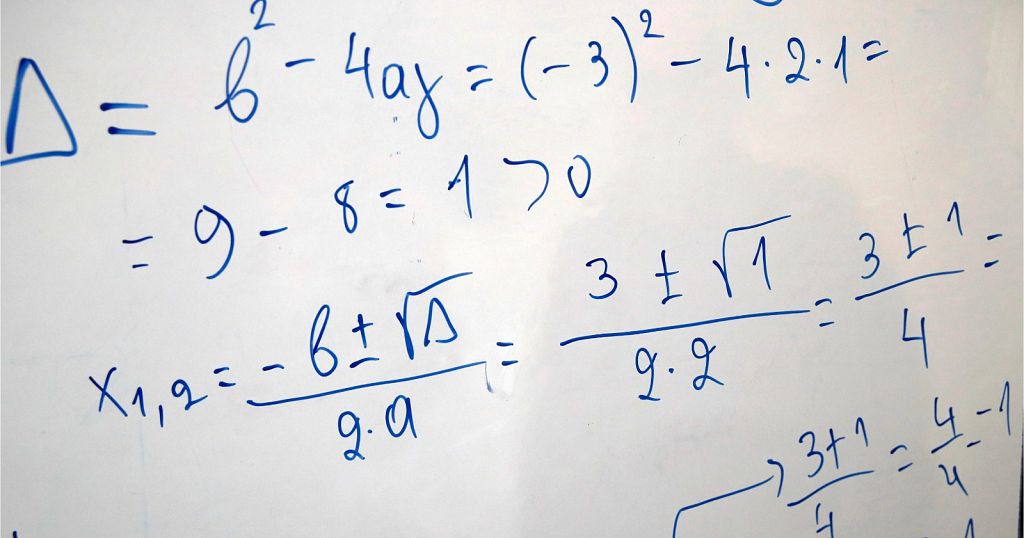 Δ = b² - 4aγ = (-3)² - 4·2·1 =
= 9 - 8 = 1 > 0
x₁,₂ = (-b ± √Δ)/(2·a) = (3 ± √1)/(2·2) = (3 ± 1)/4 =
(3+1)/4 = 4/4 = 1